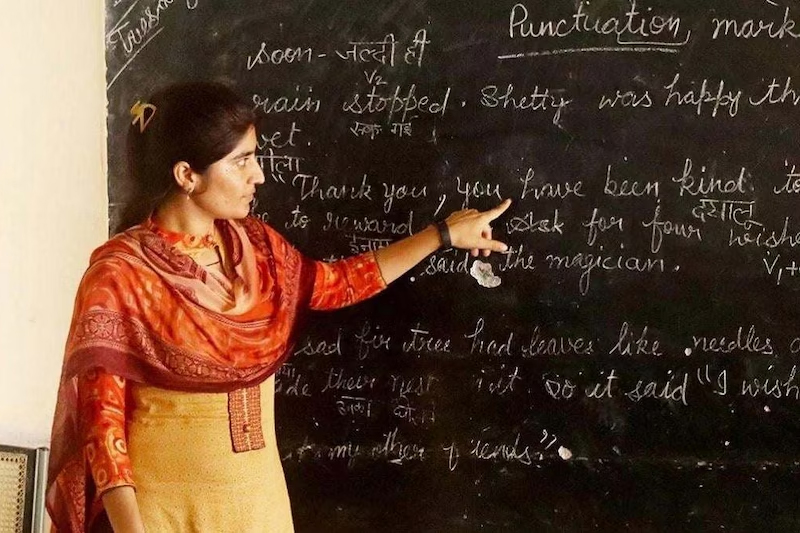 Punctuation mark
soon - जल्दी ही
V2
rain stopped. Shetty was happy th
रूक गई
wet.
गीला
"Thank you, you have been kind to
दयालू
to reward ask for four wishe
ईनाम
said the magician. V1+
sad fir tree had leaves like needles
de their nest it. So it said "I wish
उनका घोंसला
my other friends".